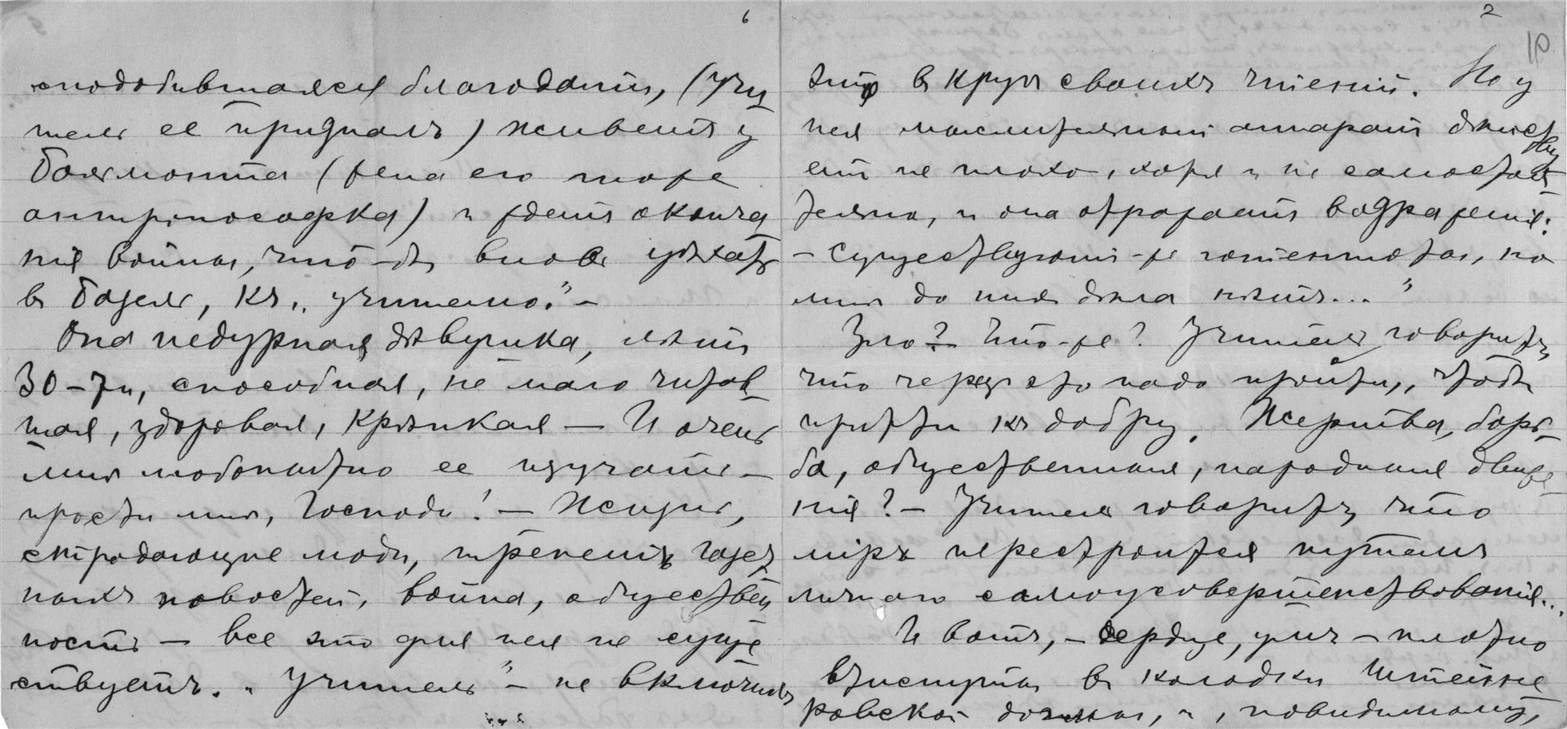 6
сподобившаяся благодати, (учи
тель ее призналъ) живетъ у
Бальмонта (жена его тоже
антропософка) и ждетъ оконча
нія войны, чтобъ вновь уѣхать
в Базель, къ „учителю“. –
Она недурная дѣвушка, лѣтъ
30-ти, способная, не мало читав
шая, здоровая, крѣпкая – И очень
мнѣ любопытно ее изучать –
прости мнѣ, Господи! – Жизнь,
страдающіе люди, трепетъ газет
ныхъ новостей, война, обществен
ность – все это для нея не суще
ствуетъ. „Учитель“ – не включилъ
2
10
это в кругъ своихъ чтеній. Но у
нея мыслительный аппаратъ дѣйству
етъ не плохо, хотя и не самостоя
тельно, и она отражаетъ возраженія:
– Существуютъ-де готтентоты, но
мнѣ до нихъ дѣла нѣтъ..."
Зло? Что-же? Учитель говоритъ,
что черезъ это надо пройти, чтобъ
прійти къ добру. Жертва, борь
ба, общественныя, народныя движе
нія? – Учитель говоритъ, что
міръ перестроится путемъ
личнаго самоусовершенствованія...
И вотъ, – сердце, умъ – плотно
в колодки Штейне
ровской догмы, и, повидимому,